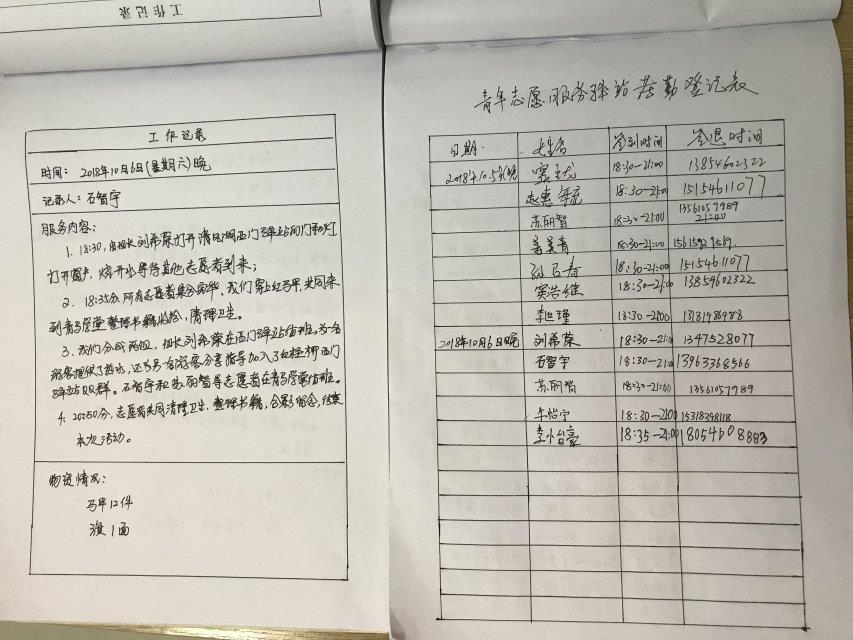 工作记录
工作记录
时间：2018年10月6日(星期六)晚
记录人：石智宇
服务内容：
1. 18:30，由组长刘希荣打开清风湖西门驿站的门和灯
打开窗户，烧开水等待其他志愿者到来；
2. 18:35分，所有志愿者集合完毕，我们穿上红马甲，共同来
到青鸟学堂整理书籍收拾，清理卫生。
3. 我们分成两组，组长刘希荣在西门驿站值班，为
游客提供了热水，还为
驿站QQ群。石智宇和苏丽智等志愿者在青鸟学堂值班。
4. 20:50分，志愿者共同清理卫生，整理书籍，合影留念，结束
本次活动。
物资情况：
马甲12件
旗1面
青年志愿服务驿站考勤登记表
日期 姓名 签到时间 签退时间
2018年10.5号晚 18:30-21:00 13854602322
18:30-21:00 15154611077
苏丽智 18:30-21:00 13561057989
21:00
姜美青 18:30-21:00
18:30-21:00 15154611077
窦浩继 18:30-21:00 13854602322
18:30-21:00 13181988988
2018年10月6日晚 刘希荣 18:30-21:00 1347528077
石智宇 18:30-21:00 13963368566
苏丽智 18:30-21:00 13561057989
牟怡宁 18:30-21:00 15318398118
李怡豪 18:35-21:00 18054608883